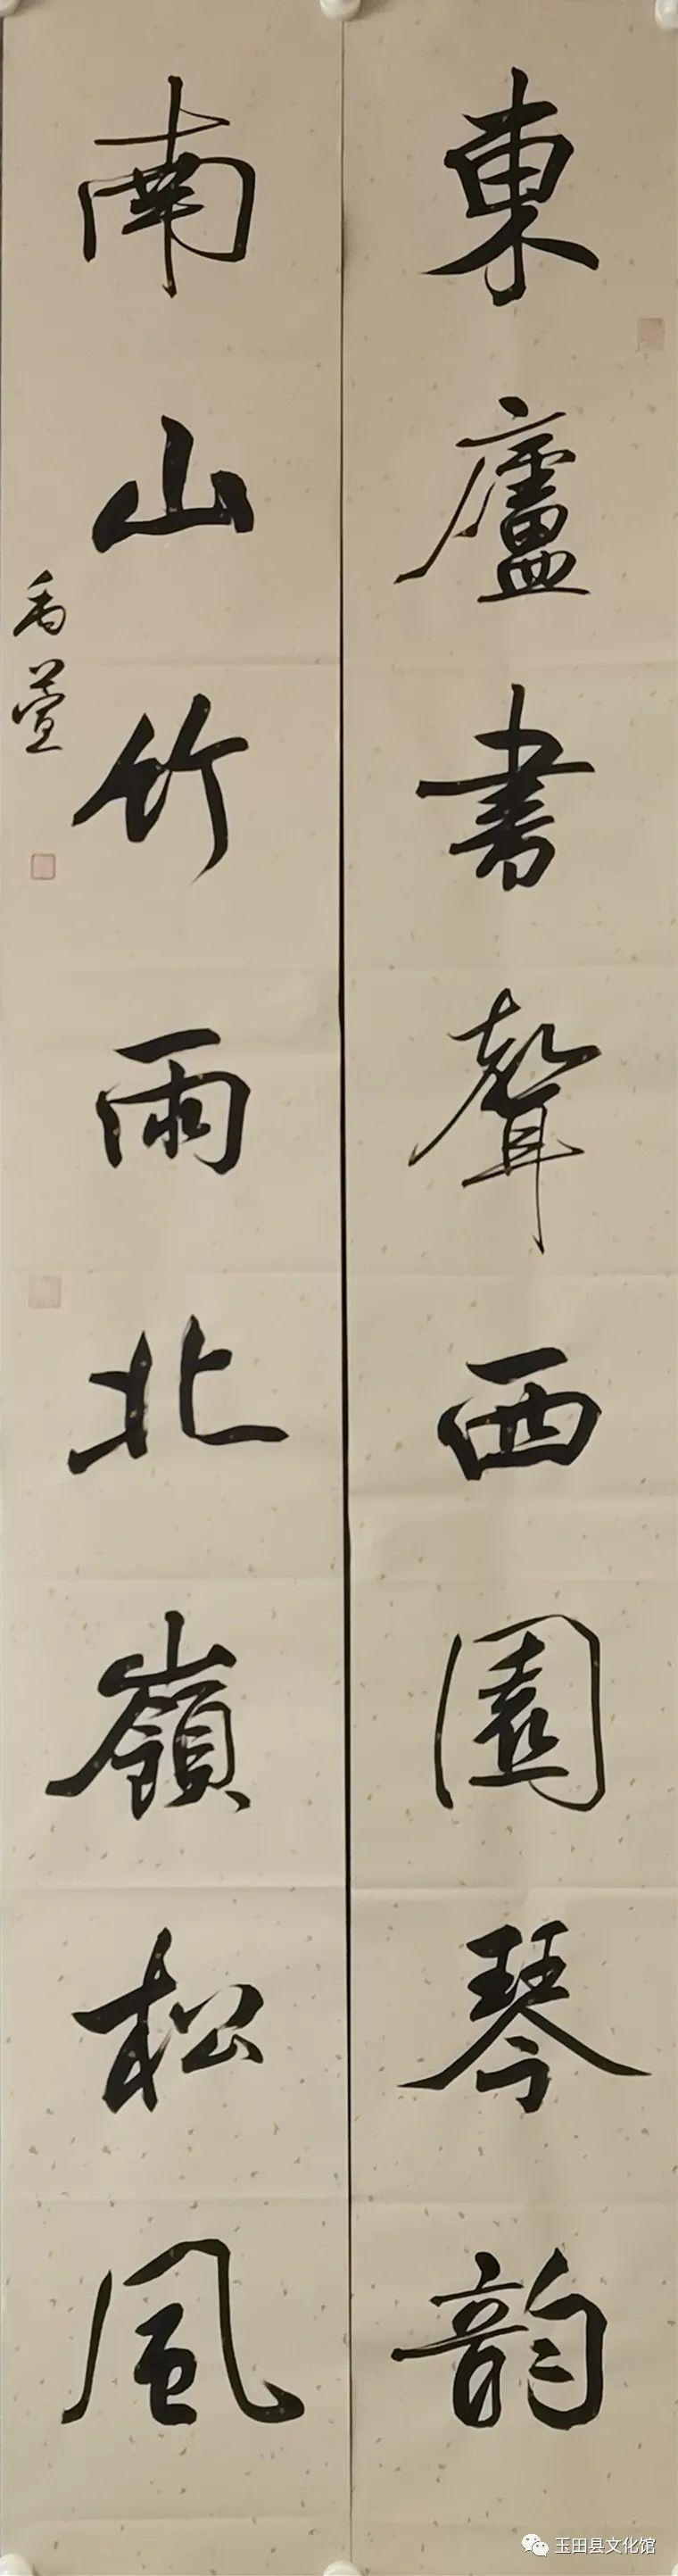 東廬書聲西園琴韵
南山竹雨北嶺松風
禹萱
玉田县文化馆